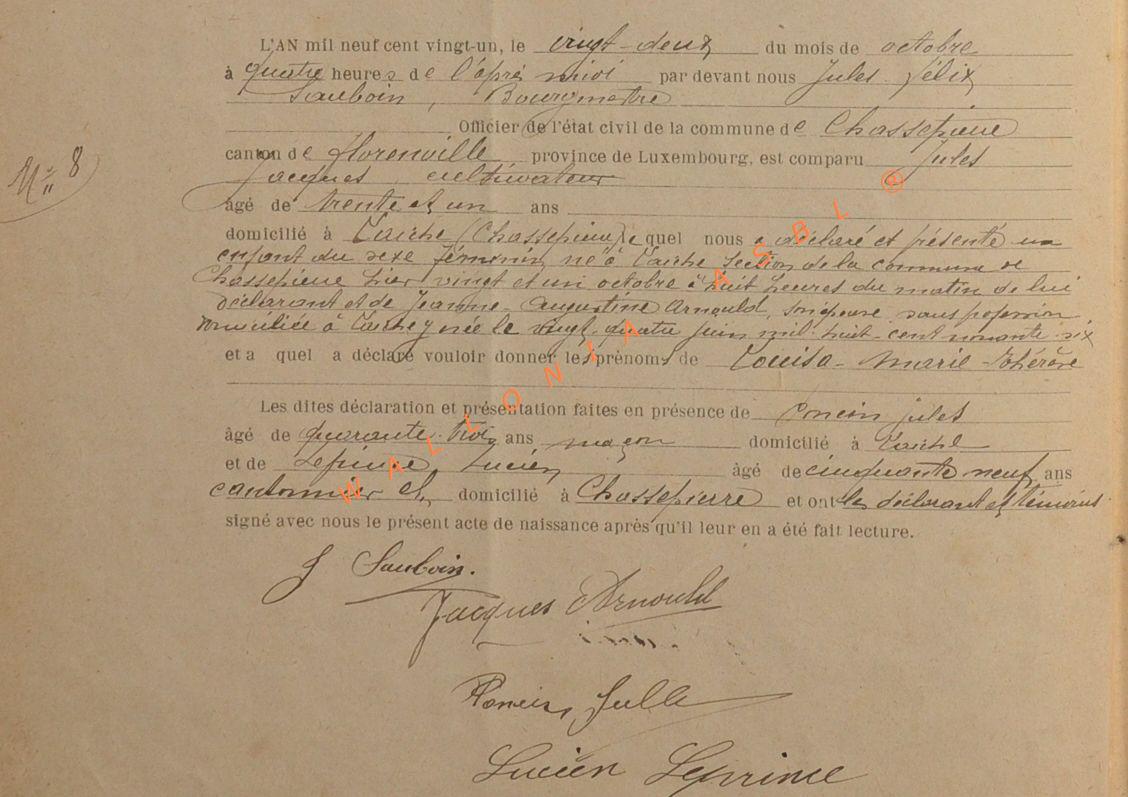 L'AN mil neuf cent vingt-un, le vingt-deux du mois de octobre
à quatre heures de l'après midi par devant nous Jules Félix
Sauboin, Bourgmestre
Officier de l'état civil de la commune de Chassepierre
N° 8
canton de Florenville province de Luxembourg, est comparu Jules
Jacques cultivateur
âgé de trente et un ans
domicilié à Laiche (Chassepierre) le quel nous a déclaré et présenté un
enfant du sexe féminin, né à Laiche section de la commune de
Chassepierre hier vingt et un octobre à huit heures du matin de lui
déclarant et de Jeanne-Augustine Arnould, son épouse sans profession
domiciliée à Laiche y née le vingt-quatre juin mil-huit-cent nonante-six
et a quel a déclaré vouloir donner les prénoms de Louisa-Marie-Thérèse
Les dites déclaration et présentation faites en présence de Poncin Jules
âgé de quarante-trois ans maçon domicilié à Laiche
et de Leprince Lucien âgé de cinquante neuf ans
cantonnier et domicilié à Chassepierre et ont les déclarant et témoins
signé avec nous le présent acte de naissance après qu'il leur en a été fait lecture.
J Sauboin.
Jacques Arnould
Poncin Jules
Lucien Leprince
WALLONIA ASBL @